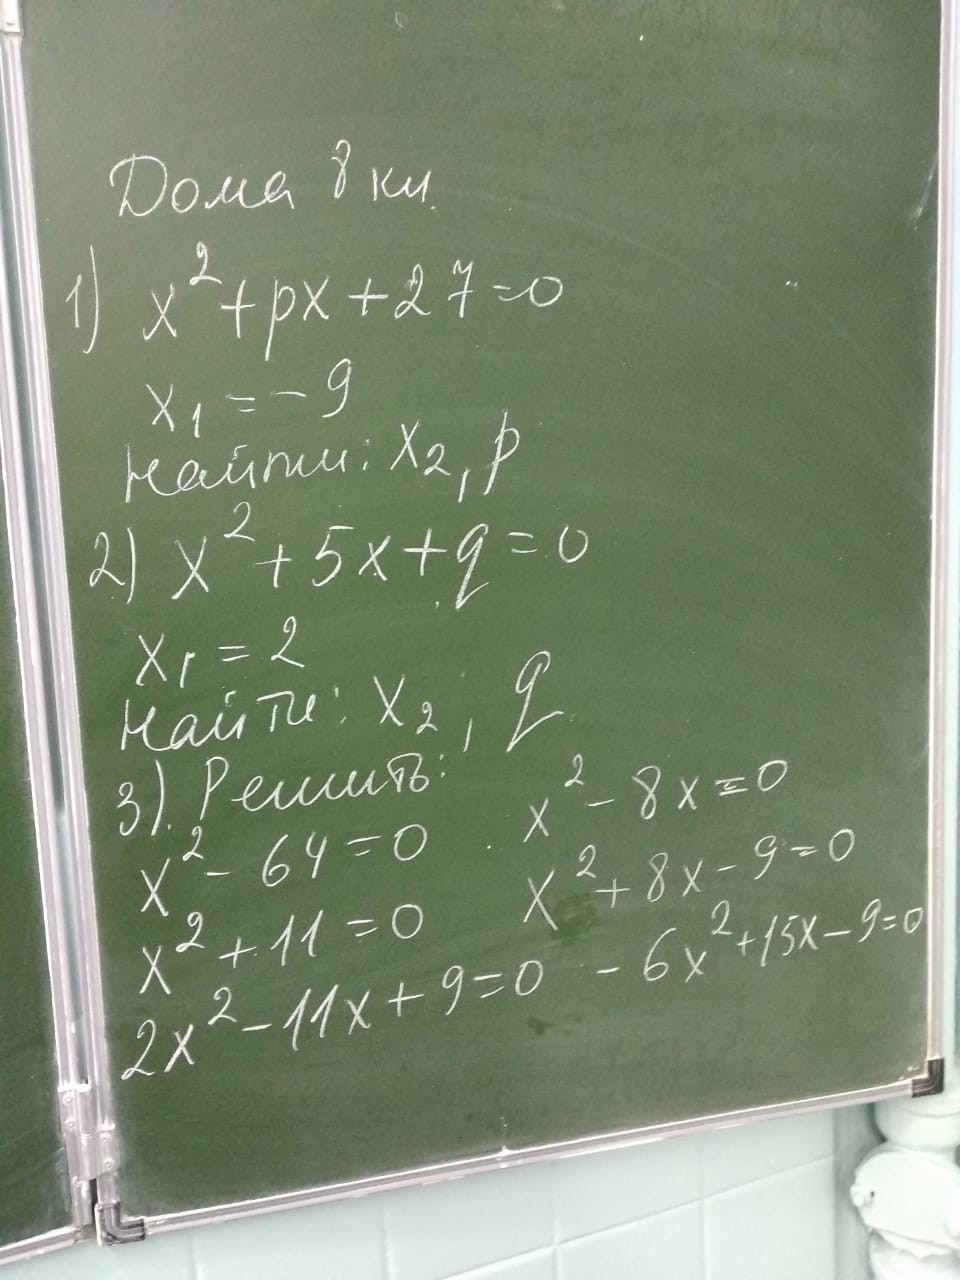 Дома 8 кл.
1) x² + px + 27 = 0
x₁ = -9
Найти: x₂, p
2) x² + 5x + q = 0
x₁ = 2
Найти: x₂, q
3). Решить:
x² - 64 = 0 x² - 8x = 0
x² + 11 = 0 x² + 8x - 9 = 0
2x² - 11x + 9 = 0 - 6x² + 15x - 9 = 0